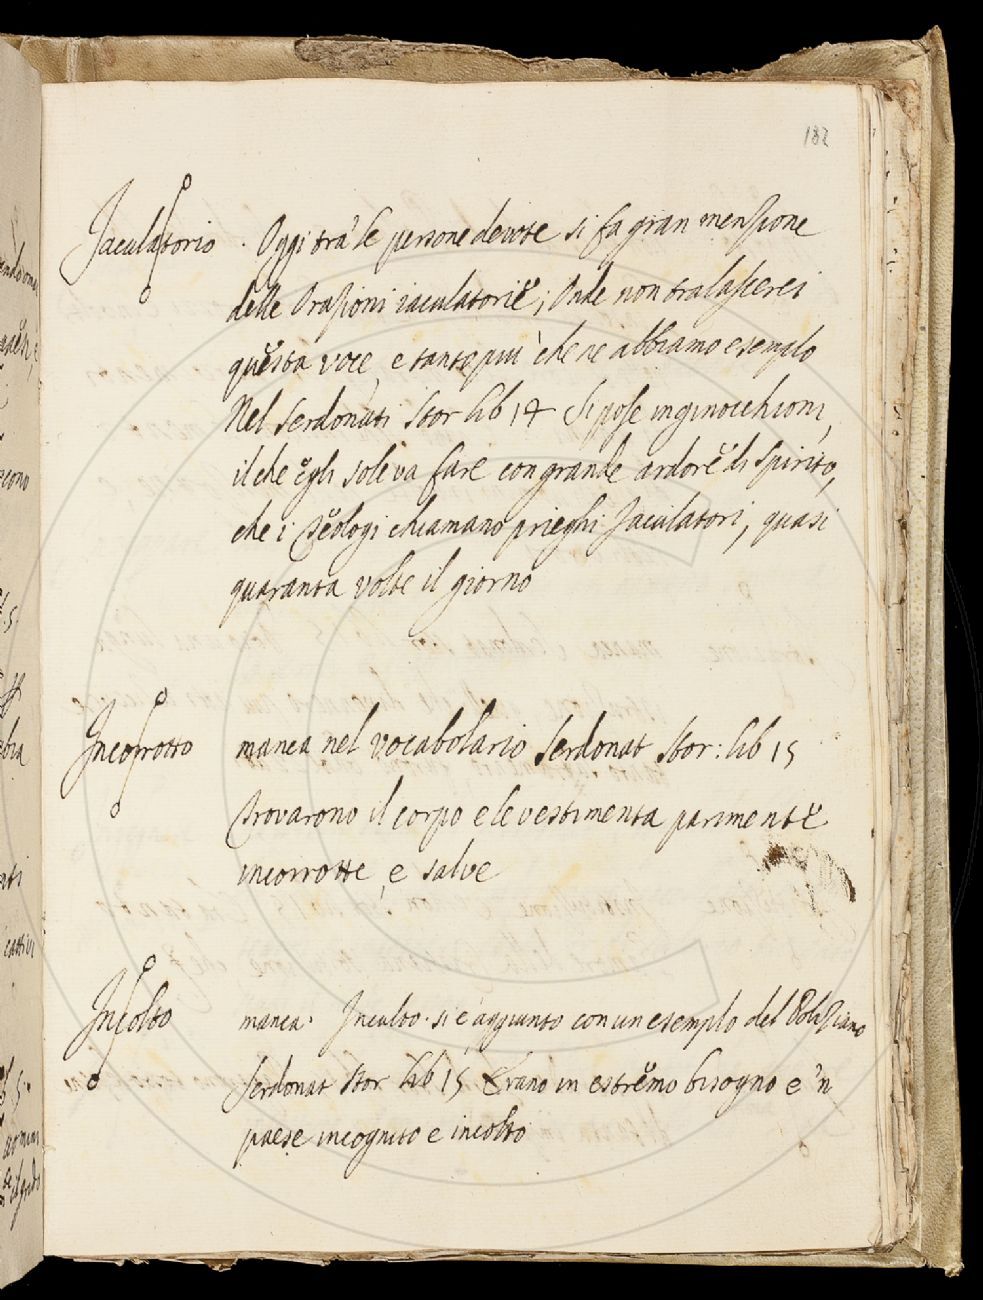 182
Jaculatorio . Oggi trà le persone devote si fa gran menzione
delle Orazioni iaculatorie; Onde non tralascerei
questa voce, e tanto più che ne abbiamo esempio
Nel Serdonati Stor lib 14 Si pose inginocchioni,
il che egli soleva fare con grande ardore di spirito,
che i Teologi chiamano prieghi Jaculatori, quasi
quaranta volte il giorno
Incorrotto manca nel vocabolario Serdonat Stor: lib 15
Trovarono il corpo e le vestimenta parimente
incorrotte, e salve
Incolto manca. Inculto. si è aggiunto con un esempio del Poliziano
Serdonat Stor lib 15 Erano in estremo bisogno e 'n
paese incognito e incolto